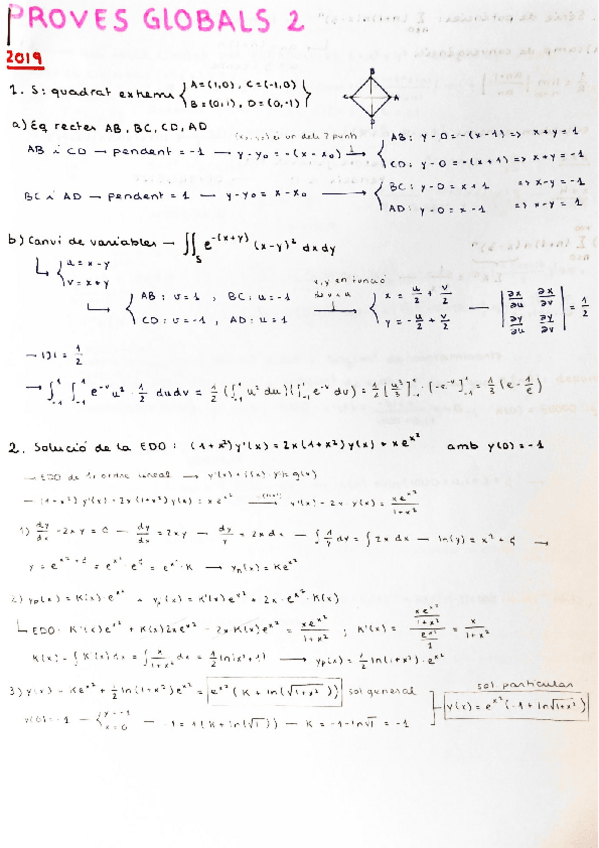 PROVES GLOBALS 2
2019
1. S: quadrat extrems { A=(1,0), C=(-1,0)
B=(0,1), D=(0,-1) }
B
C A
D
a) Eq rectes AB, BC, CD, AD
AB i CD — pendent = -1 — y-y₀ = -(x-x₀) → { AB: y-0=-(x-1) => x+y=1
CD: y-0=-(x+1) => x+y=-1
BC i AD — pendent = 1 — y-y₀ = x-x₀ → { BC: y-0=x+1 => x-y=-1
AD: y-0=x-1 => x-y=1
b) Canvi de variables — ∬_S e^{-(x+y)} (x-y)² dxdy
{ u=x-y
v=x+y
{ AB: v=1, BC: u=-1
CD: v=-1, AD: u=1
x, y en funció
{ x = u/2 + v/2
y = -u/2 + v/2
| ∂x/∂u ∂x/∂v |
| ∂y/∂u ∂y/∂v | = 1/2
→ |J| = 1/2
→ ∫_{-1}^{1} ∫_{-1}^{1} e^{-v} u² · 1/2 dudv = 1/2 (∫_{-1}^{1} u² du)(∫_{-1}^{1} e^{-v} dv) = 1/2 [u³/3]_{-1}^{1} · [-e^{-v}]_{-1}^{1} = 1/3 (e - 1/e)
2. Solució de la EDO: (1+x²)y'(x)=2x(1+x²)y(x)+xe^{x²} amb y(0)=-1
— EDO de 1r ordre lineal →
— (1+x²)y'(x)-2x(1+x²)y(x)=xe^{x²} → y'(x)-2x y(x)= xe^{x²}/(1+x²)
1) dy/dx -2xy=0 — dy/dx=2xy — dy/y=2xdx — ∫ 1/y dy = ∫ 2x dx — ln(y)=x²+C →
y = e^{x²+C} = e^{x²} e^{C} = e^{x²}·K → y_h(x)=Ke^{x²}
2) y_p(x)=K(x) e^{x²} → y_p'(x)=K'(x)e^{x²}+2x·e^{x²}·K(x)
EDO: K'(x)e^{x²}+K(x)2xe^{x²}-2xK(x)e^{x²} = xe^{x²}/(1+x²) ; K'(x)= (xe^{x²}/(1+x²))/(e^{x²}/1) = x/(1+x²)
K(x)=∫K'(x)dx=∫ x/(1+x²) dx = 1/2 ln(x²+1) → y_p(x)=1/2 ln(1+x²)·e^{x²}
3) y(x)=Ke^{x²}+1/2 ln(1+x²)e^{x²} = e^{x²}(K+ln(√(1+x²))) sol general
y(0)=-1 — { y=-1
x=0 — -1=1(K+ln(√1)) — K=-1-ln√1=-1
sol particular
y(x)=e^{x²}(-1+ln√(1+x²))